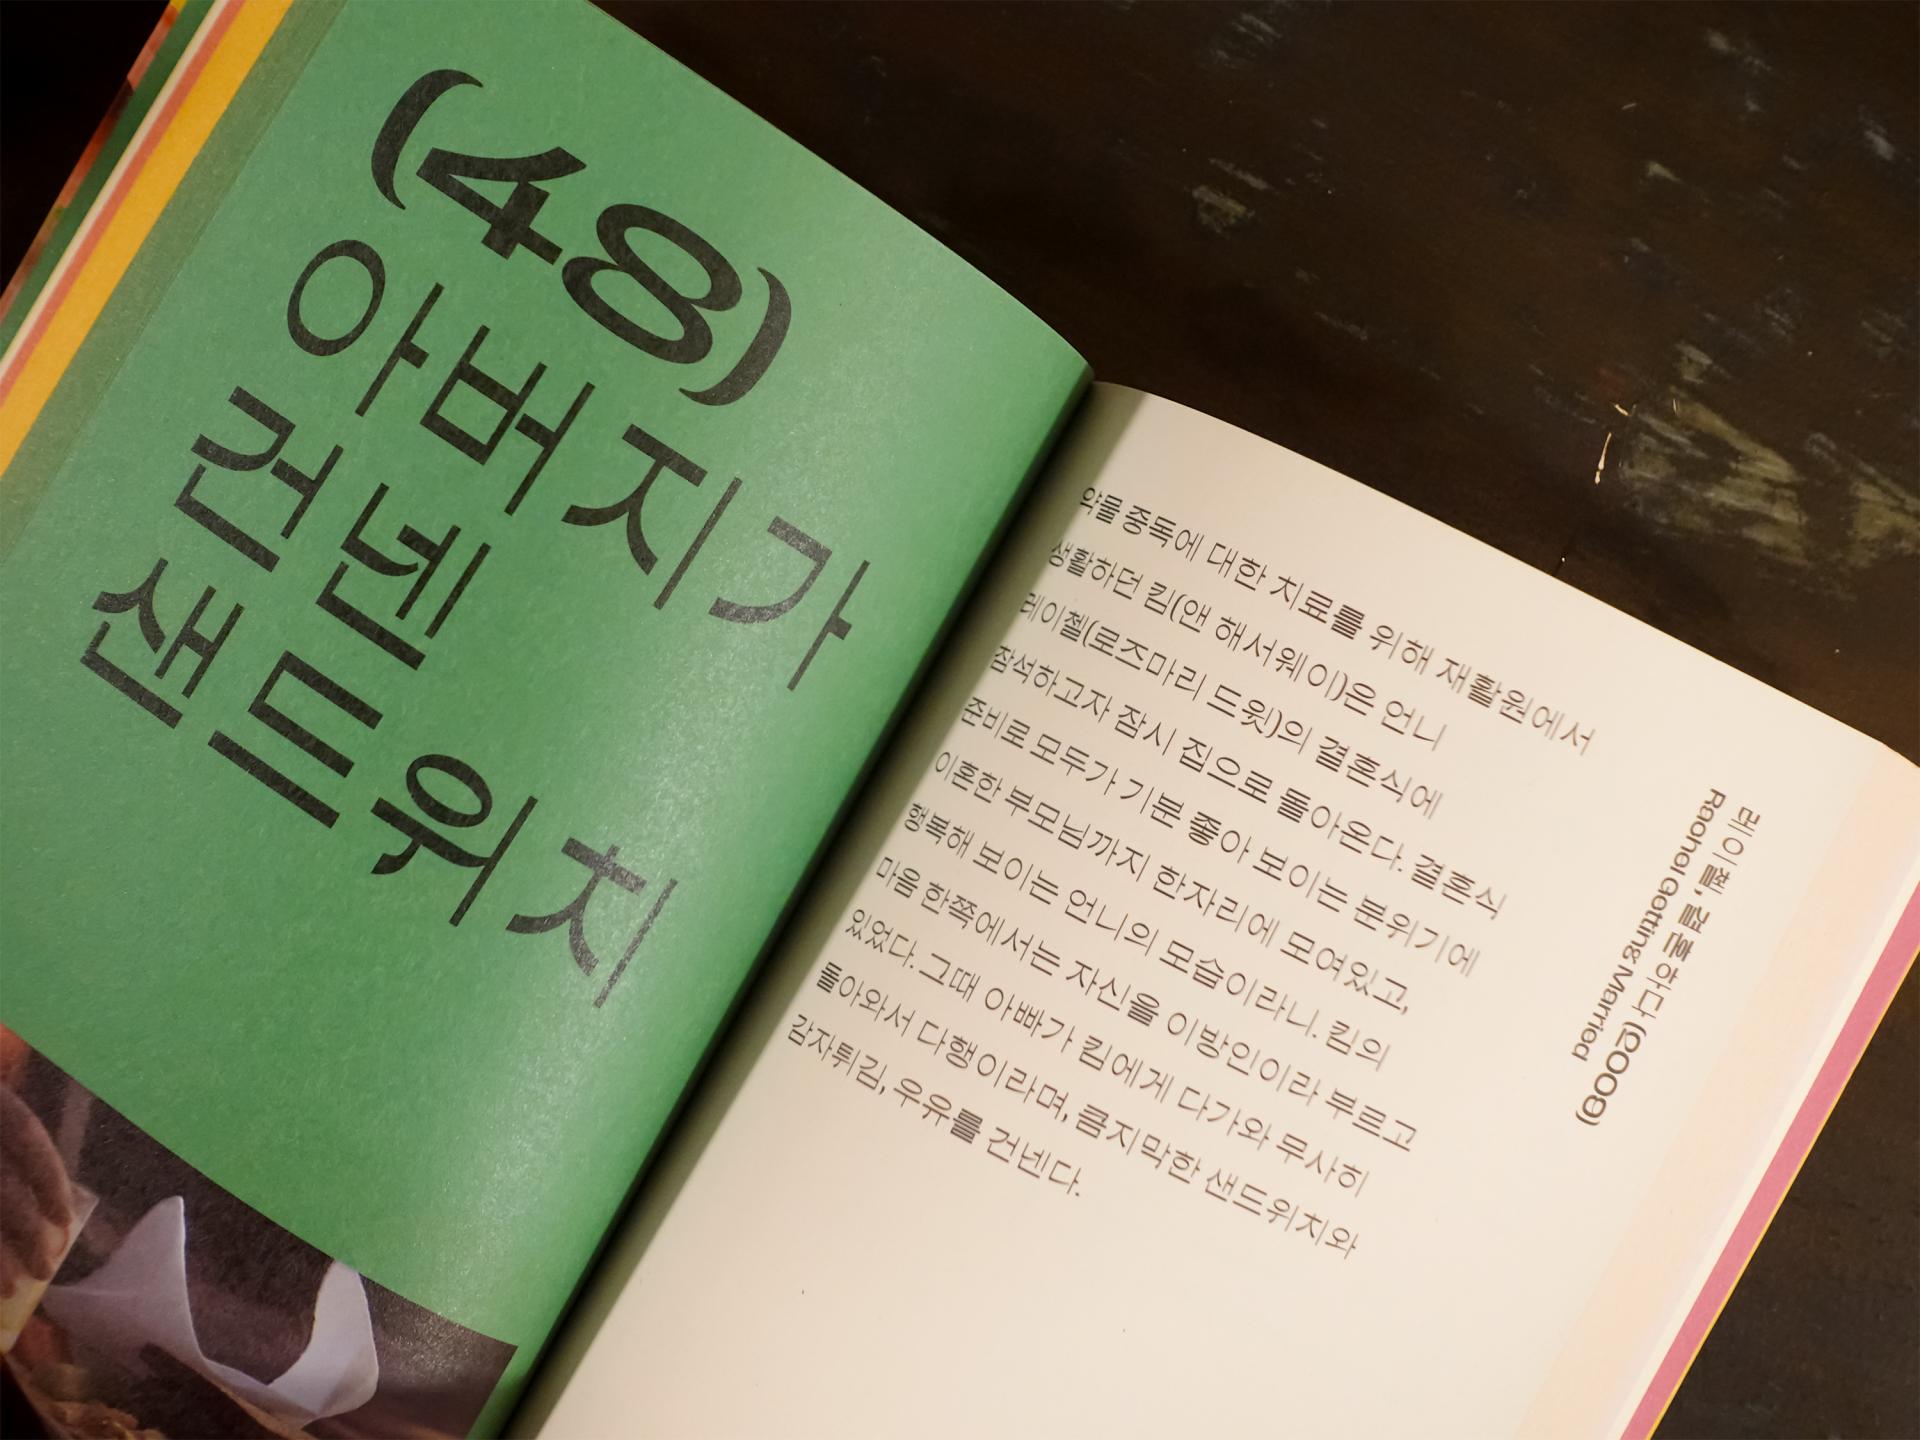 (48)
아버지가
건넨
샌드위치
약물 중독에 대한 치료를 위해 재활원에서
생활하던 킴(앤 해서웨이)은 언니
레이첼(로즈마리 드윗)의 결혼식에
참석하고자 잠시 집으로 돌아온다. 결혼식
준비로 모두가 기분 좋아 보이는 분위기에
이혼한 부모님까지 한자리에 모여있고,
행복해 보이는 언니의 모습이라니. 킴의
마음 한쪽에서는 자신을 이방인이라 부르고
있었다. 그때 아빠가 킴에게 다가와 무사히
돌아와서 다행이라며, 큼지막한 샌드위치와
감자튀김, 우유를 건넨다.
레이첼, 결혼하다 (2008)
Rachel Getting Married